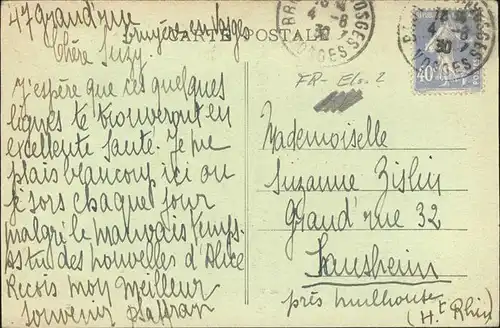 47 Grand'rue
Bruyères en Vosges
CARTE POSTALE
Chère Suzy
J'espère que ces quelques
lignes te trouveront en
excellente santé. Je me
plais beaucoup ici ou
je sors chaque jour
malgré le mauvais temps.
As tu des nouvelles d'Alice
Reçois mon meilleur
souvenir
FR- Els. 2
Mademoiselle
Suzanne Zislin
Grand'rue 32
Sausheim
près Mulhouse
(Ht Rhin)
VOSGES
4 -8
30
VOSGES
4 -8
30
40c